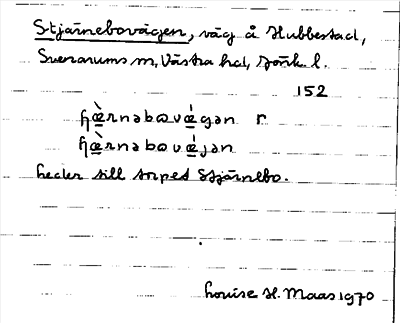 Stjärnebovägen, väg å Hubbestad,
Svenarums sn, Västra hd, Jönk. l.
152
ɧæ̀rnəbωvǽgən r
ɧæ̀rnəbωvǽjən
leder till torpet Stjärnebo.
Louise H. Maas 1970